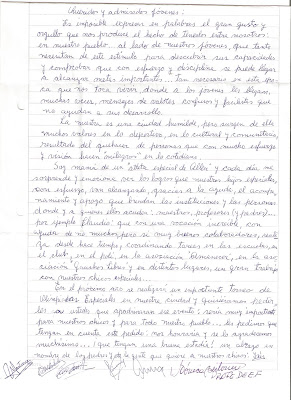 Queridos y admirados jóvenes:
Es imposible expresar en palabras el gran gusto y
orgullo que nos produce el hecho de tenerlos entre nosotros:
en nuestro pueblo, al lado de nuestros jóvenes, que tanto
necesitan de este estímulo para descubrir sus capacidades
y comprobar que con esfuerzo y disciplina se puede llegar
a alcanzar metas importantes... Tan necesario en esta épo-
ca que nos toca vivir donde a los jóvenes les llegan,
muchas veces, mensajes de valores confusos y facilistas que
no ayudan a su desarrollo.
La nuestra es una ciudad humilde, pero surgen de ella
muchos valores en lo deportivo, en lo cultural y comunitario,
resultado del quehacer de personas que con mucho esfuerzo
y visión hacen "milagros" en lo cotidiano.
Soy mamá de un "atleta especial" y cada día me
sorprende y emociona ver los logros que nuestros hijos especiales,
con esfuerzo, van alcanzando, gracias a la ayuda, el acompa-
ñamiento y apoyo que brindan las instituciones y las personas
donde y a quienes ellos acuden: maestros, profesores (y padres)...
por ejemplo Claudio: que con una vocación increíble, con
ayuda de no muchos, pero sí muy buenos colaboradores, reali-
za desde hace tiempo, coordinando tareas en las escuelas, en
el club, en el poli, en la asociación, en la aso-
ciación y en distintos lugares, un gran trabajo
con nuestros chicos especiales...
En el próximo mes se realizará un importante torneo de
Olimpíadas Especiales en nuestra ciudad y quisiéramos pedir-
les a ustedes que apadrinaran ese evento; sería muy importante
para nuestros chicos y para todo nuestro pueblo... les pedimos que
tengan en cuenta este pedido: nos honraría y se lo agradecemos
muchísimo...! Que tengan una buena estadía! Un abrazo en
nombre de los padres y de la gente que quiere a nuestros chicos!